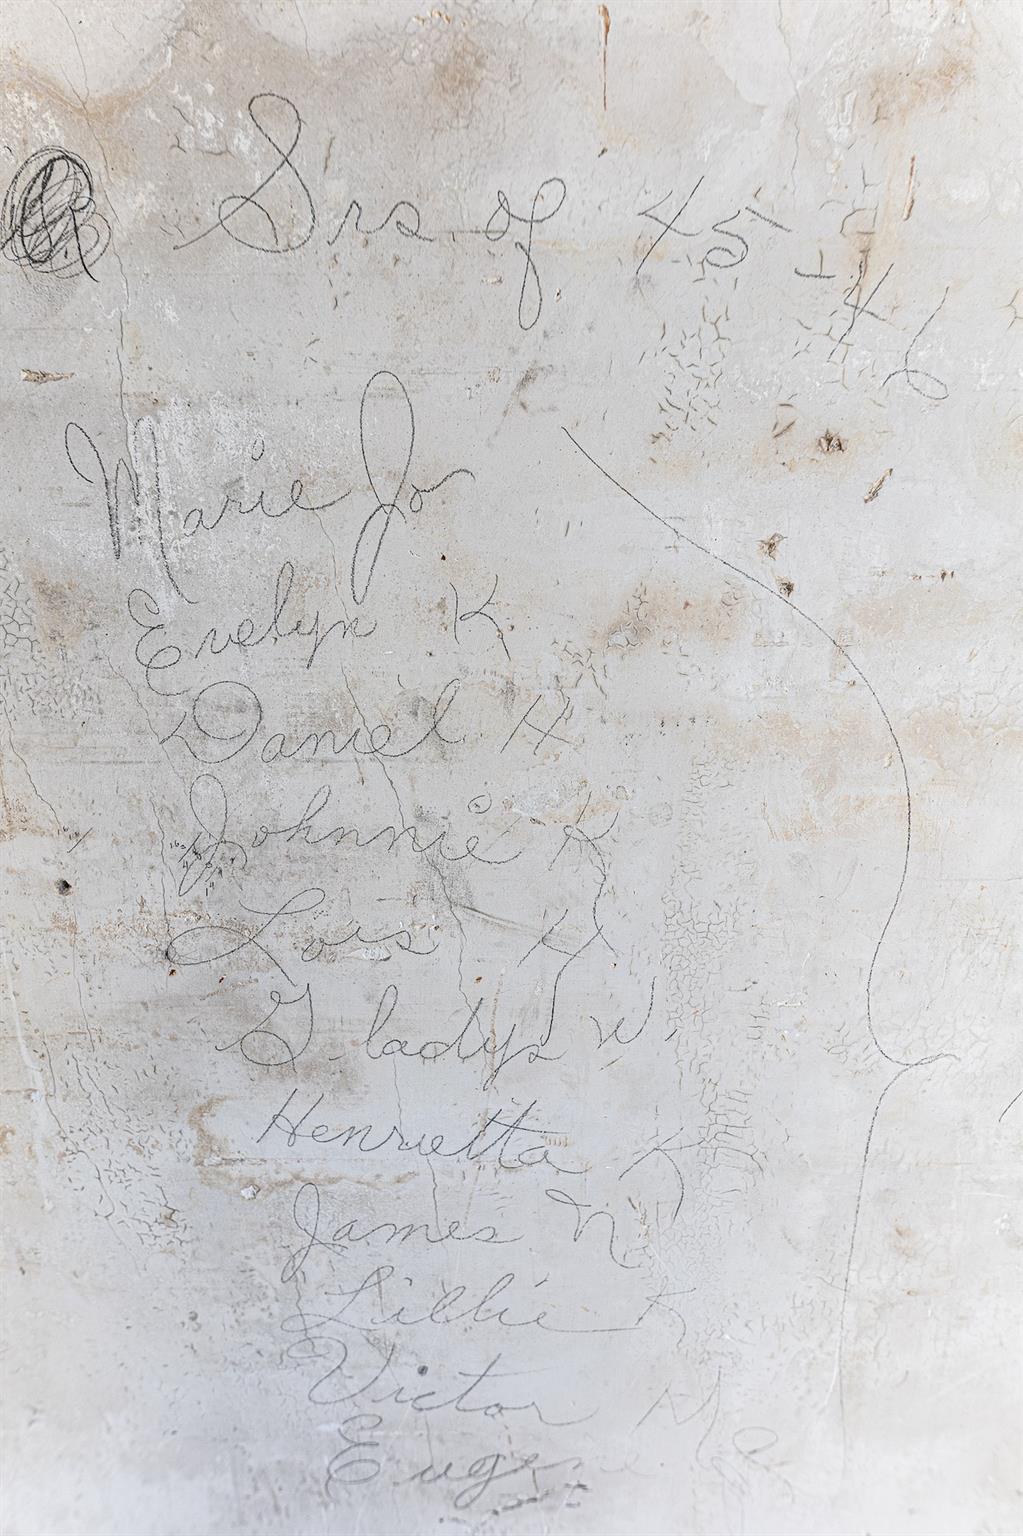 Srs of 45-46
Marie Jo
Evelyn K
Daniel H
Johnnie K
Lois H
Gladys W
Henrietta K
James N
Lillie K
Victor M
Eugene